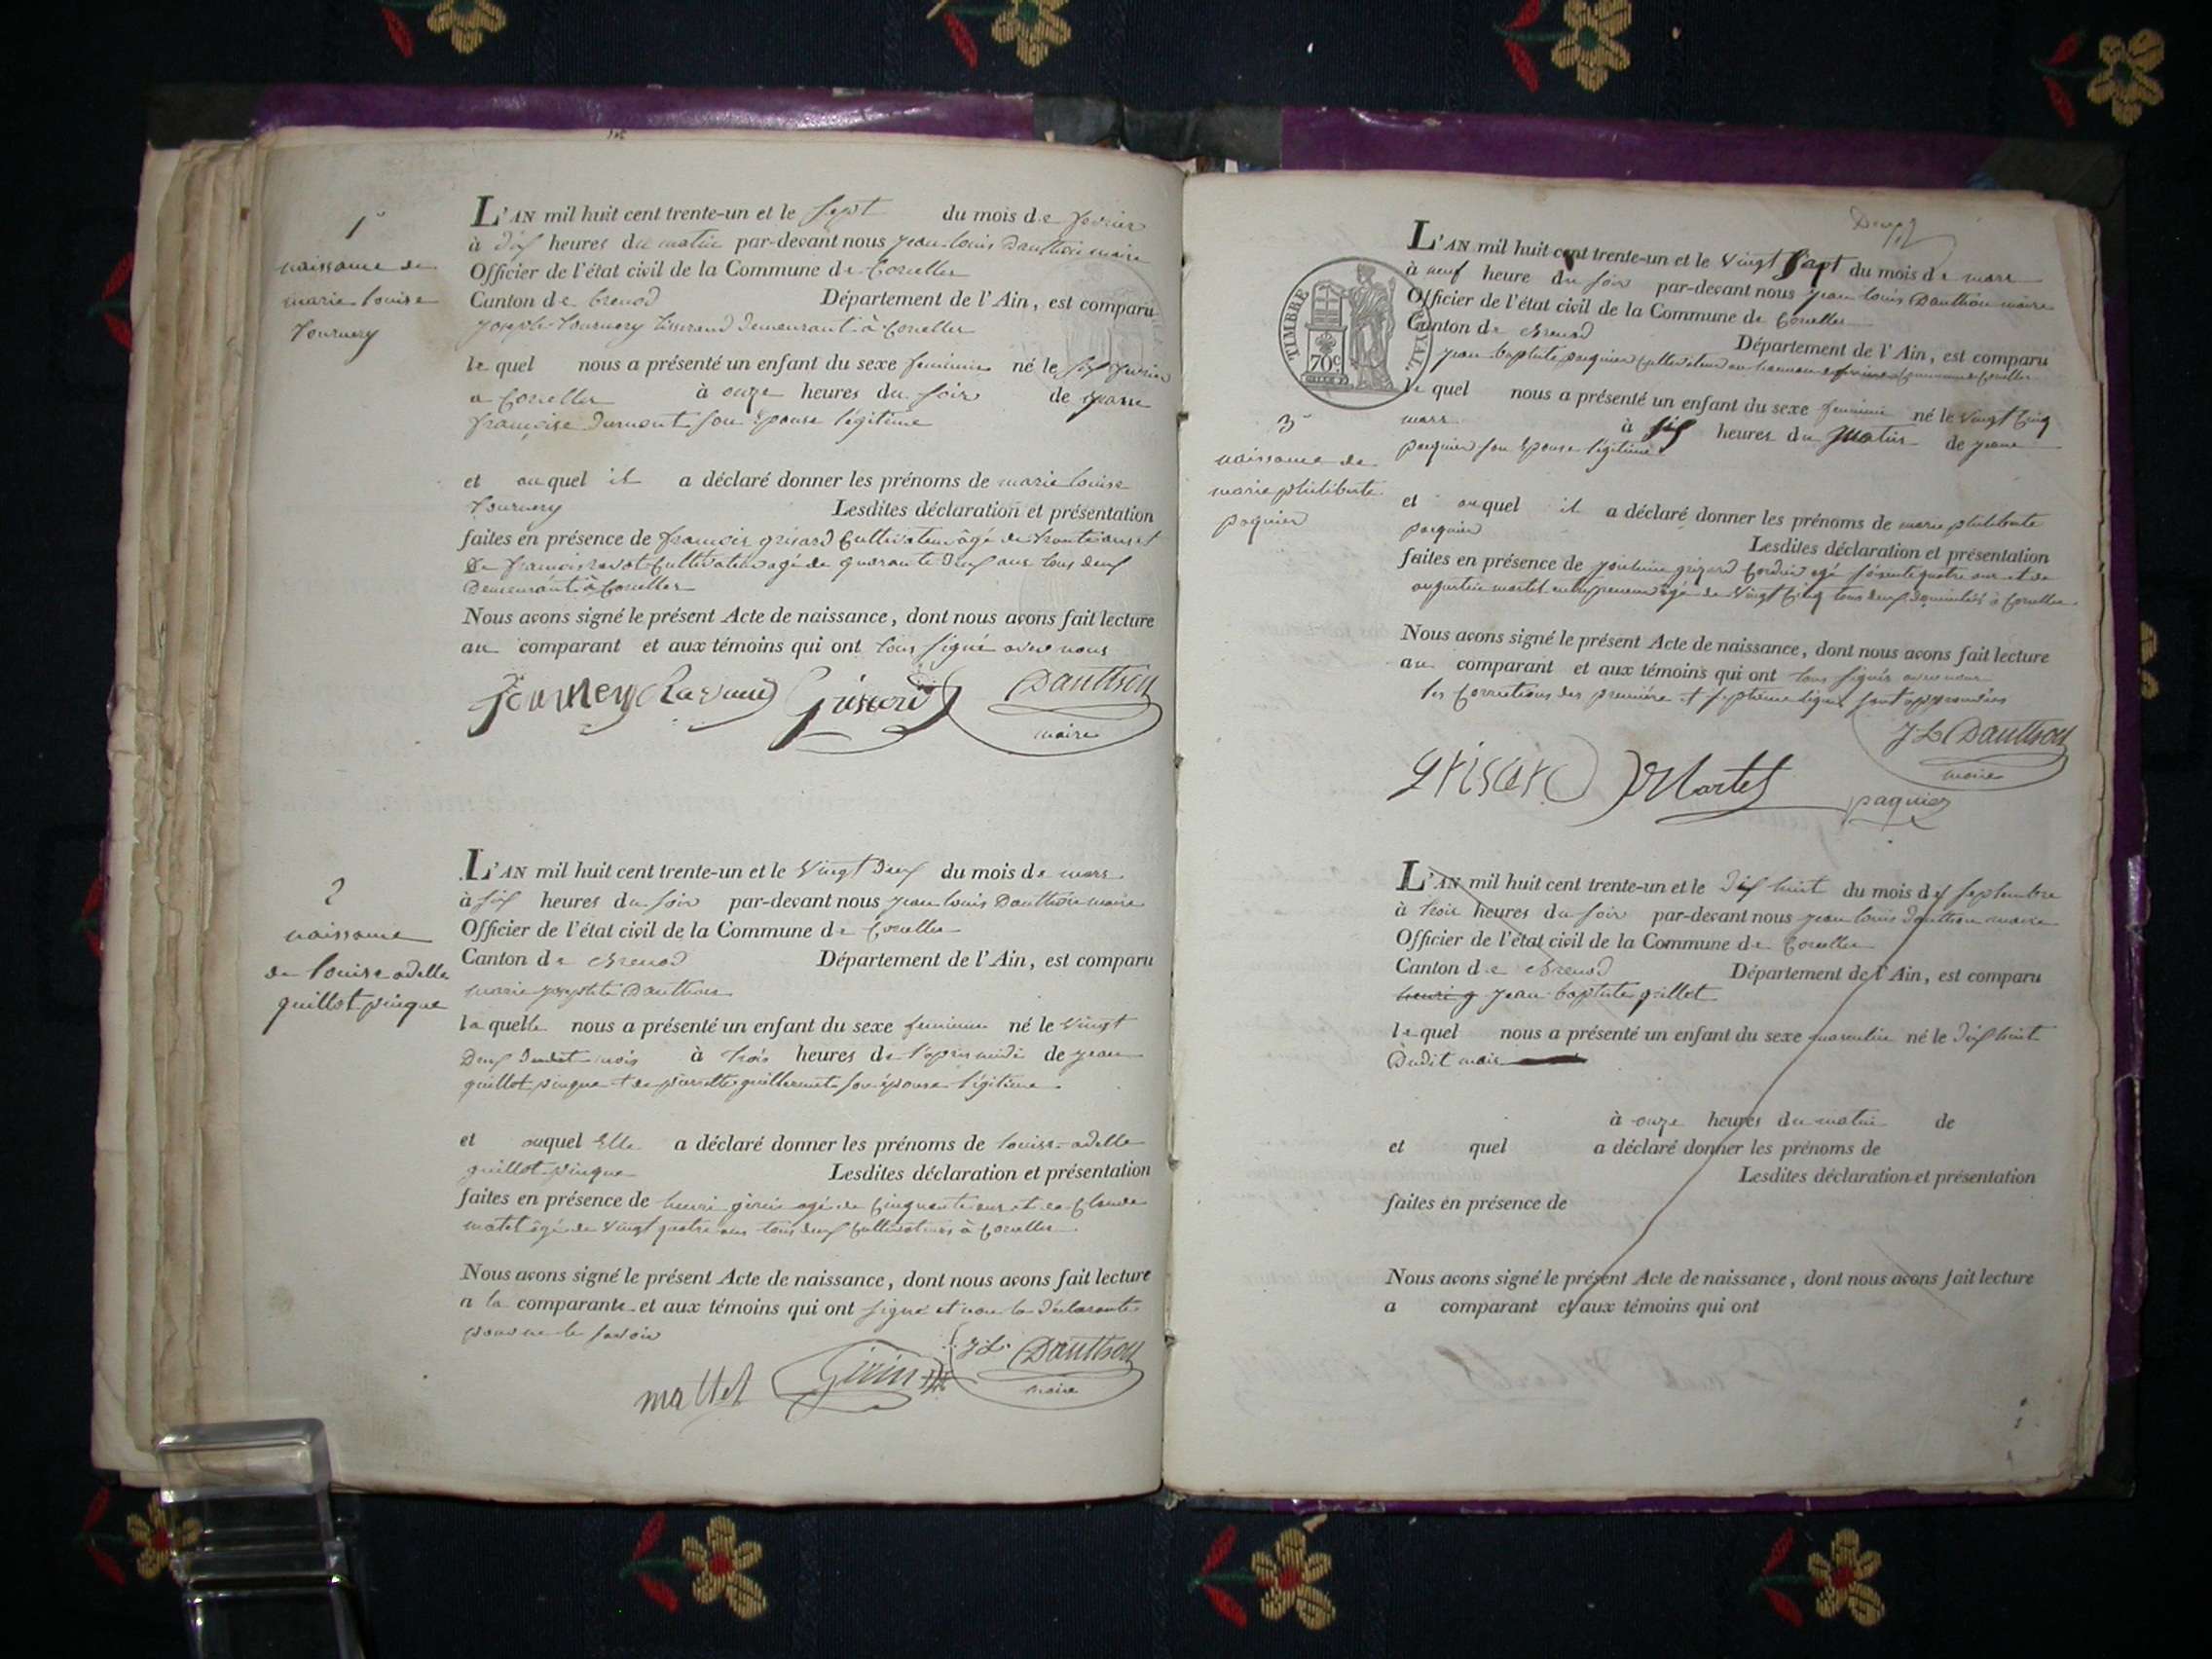 1°
naissance de
marie louise
Tournery
L'AN mil huit cent trente-un et le sept du mois de fevrier
à dix heures du matin par-devant nous jean louis Dauthon maire
Officier de l'état civil de la Commune de Corcelles
Canton de brenod Département de l'Ain, est comparu
joseph tournery tisserand demeurant à Corcelles
le quel nous a présenté un enfant du sexe feminin né le six fevrier
a Corcelles à onze heures du soir de jeanne
françoise Dumont son épouse légitime
et auquel il a déclaré donner les prénoms de marie louise
Tournery Lesdites déclaration et présentation
faites en présence de françois grisard Cultivateur âgé de trente ans et
de françois Cultivateur agé de quarante deux ans tous deux
demeurant à Corcelles
Nous avons signé le présent Acte de naissance, dont nous avons fait lecture
au comparant et aux témoins qui ont tous signé avec nous
Grisard Dauthon
maire
2
naissance
de louise adelle
guillot pingue
L'AN mil huit cent trente-un et le vingt deux du mois de mars
à six heures du soir par-devant nous jean louis Dauthon maire
Officier de l'état civil de la Commune de Corcelles
Canton de brenod Département de l'Ain, est comparu
marie josephte Dauthon
la quelle nous a présenté un enfant du sexe feminin né le vingt
deux dudit mois à trois heures de l'après midi de jean
guillot pingue et de pierrette guillermet son épouse légitime
et auquel Elle a déclaré donner les prénoms de louise adelle
guillot pingue Lesdites déclaration et présentation
faites en présence de henri girin agé de Cinquante ans et de Claude
matet âgé de vingt quatre ans tous deux Cultivateurs à Corcelles
Nous avons signé le présent Acte de naissance, dont nous avons fait lecture
a la comparante et aux témoins qui ont signé et non la déclarante
pour ne le savoir
mattet Girin J L Dauthon
maire
TIMBRE ROYAL
70c
L'AN mil huit cent trente-un et le vingt sept du mois de mars
à neuf heure du soir par-devant nous jean louis Dauthon maire
Officier de l'état civil de la Commune de Corcelles
Canton de brenod Département de l'Ain, est comparu
jean baptiste paquier Cultivateur au hameau de Commune de Corcelles
le quel nous a présenté un enfant du sexe feminin né le vingt Cinq
mars à six heures du matin de jeane
paquier son épouse légitime
3°
naissance de
marie philiberte
paquier
et auquel il a déclaré donner les prénoms de marie philiberte
paquier Lesdites déclaration et présentation
faites en présence de grisard agé soixente quatre ans et de
augustin martel entrepreneur âgé de vingt Cinq tous deux domiciliés à Corcelles
Nous avons signé le présent Acte de naissance, dont nous avons fait lecture
au comparant et aux témoins qui ont tous signés avec nous
les Corrections des première et septieme lignes sont approuvées
J L Dauthon
maire
grisard Martel paquier
L'AN mil huit cent trente-un et le dix huit du mois de septembre
à trois heures du soir par-devant nous jean louis dauthon maire
Officier de l'état civil de la Commune de Corcelles
Canton de brenod Département de l'Ain, est comparu
henri g jean baptiste guillot
le quel nous a présenté un enfant du sexe masculin né le dix huit
dudit mois
à onze heures du matin de
et quel a déclaré donner les prénoms de
Lesdites déclaration et présentation
faites en présence de
Nous avons signé le présent Acte de naissance, dont nous avons fait lecture
a comparant et aux témoins qui ont